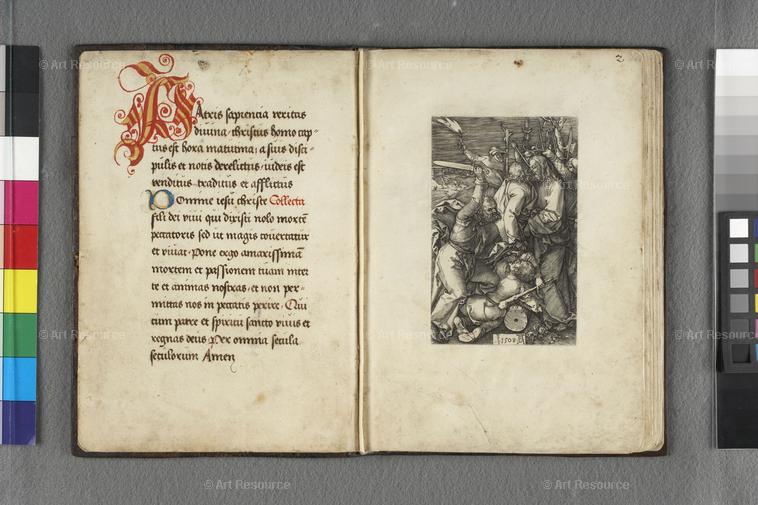 Patris sapientia veritas
divina christus homo cap-
tus est hora matutina: a suis disci-
pulis et notis derelictus: iudeis est
venditus traditus et afflictus
Domine iesu christe Collecta
fili dei vivi qui dixisti nolo mortē
peccatoris sed ut magis cōvertatur
et vivat. Pone ergo amarissimā
mortem et passionem tuam inter
te et animas nostras: et non per-
mittas nos in peccatis perire. Qui
cum patre et spiritu sancto vivis et
regnas deus Per omnia secula
seculorum Amen
2
1508
© Art Resource
© Art Resource
© Art Resource
© Art Resource
© Art Resource
© Art Resource
© Art Resource
© Art Resource